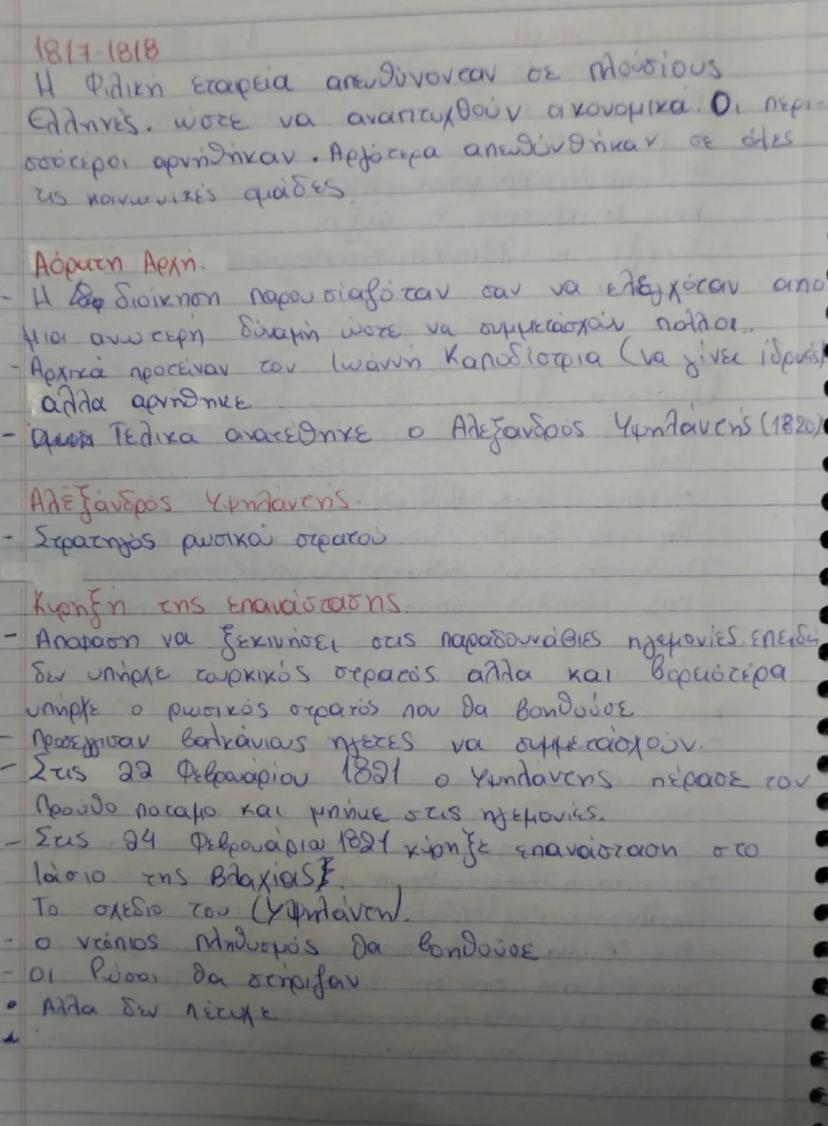 1817-1818
Η Φιλική εταιρεία απευθύνονταν σε πλούσιους
Ελληνές. ώστε να αναπτυχθούν οικονομικά. Οι περι-
σσότεροι αρνήθηκαν. Αργότερα απευθύνθηκαν σε όλες
τις κοινωνικές ομάδες.
Αόρατη Αρχή.
- Η διοίκηση παρουσιαζόταν σαν να ελεγχόταν απο
μια ανωτερη δύναμη ώστε να συμμετάσχουν πολλοι..
- Αρχικά προτειναν τον Ιωάννη Καποδίστρια (να γίνει ιδρυτής)
αλλα αρνήθηκε
- Τελικα ανατέθηκε ο Αλεξανδρός Υψηλάντης (1820)
Αλέξάνδρός Υψηλάντης.
- Στρατηγός ρωσικού στρατού
Κυρηξή της επανάστασης.
- Αποφαση να ξεκινήσει στις παραδουνάβιες ηγεμονίες. επειδή
δεν υπήρχε τουρκικός στρατός αλλα και βορειότερα
υπήρχε ο ρωσικός στρατός που θα βοηθούσε
- Προσέγγισαν βαλκάνιους ηγετες να συμμετάσχούν.
- Στις 22 Φεβρουάριου 1821 ο Υψηλάντης πέρασε τον
Προύθο ποταμο και μπήκε στις ηγεμονίες.
- Στις 24 Φεβρουάριου 1821 κύρηξε επανάσταση στο
Ιάσιο της Βλαχίας.
Το σχέδιο του (Υψηλάντη).
- ο ντόπιος πληθυσμός θα βοηθούσε
- οι Ρώσοι θα στήριζαν
• Αλλα δεν πέτυχε